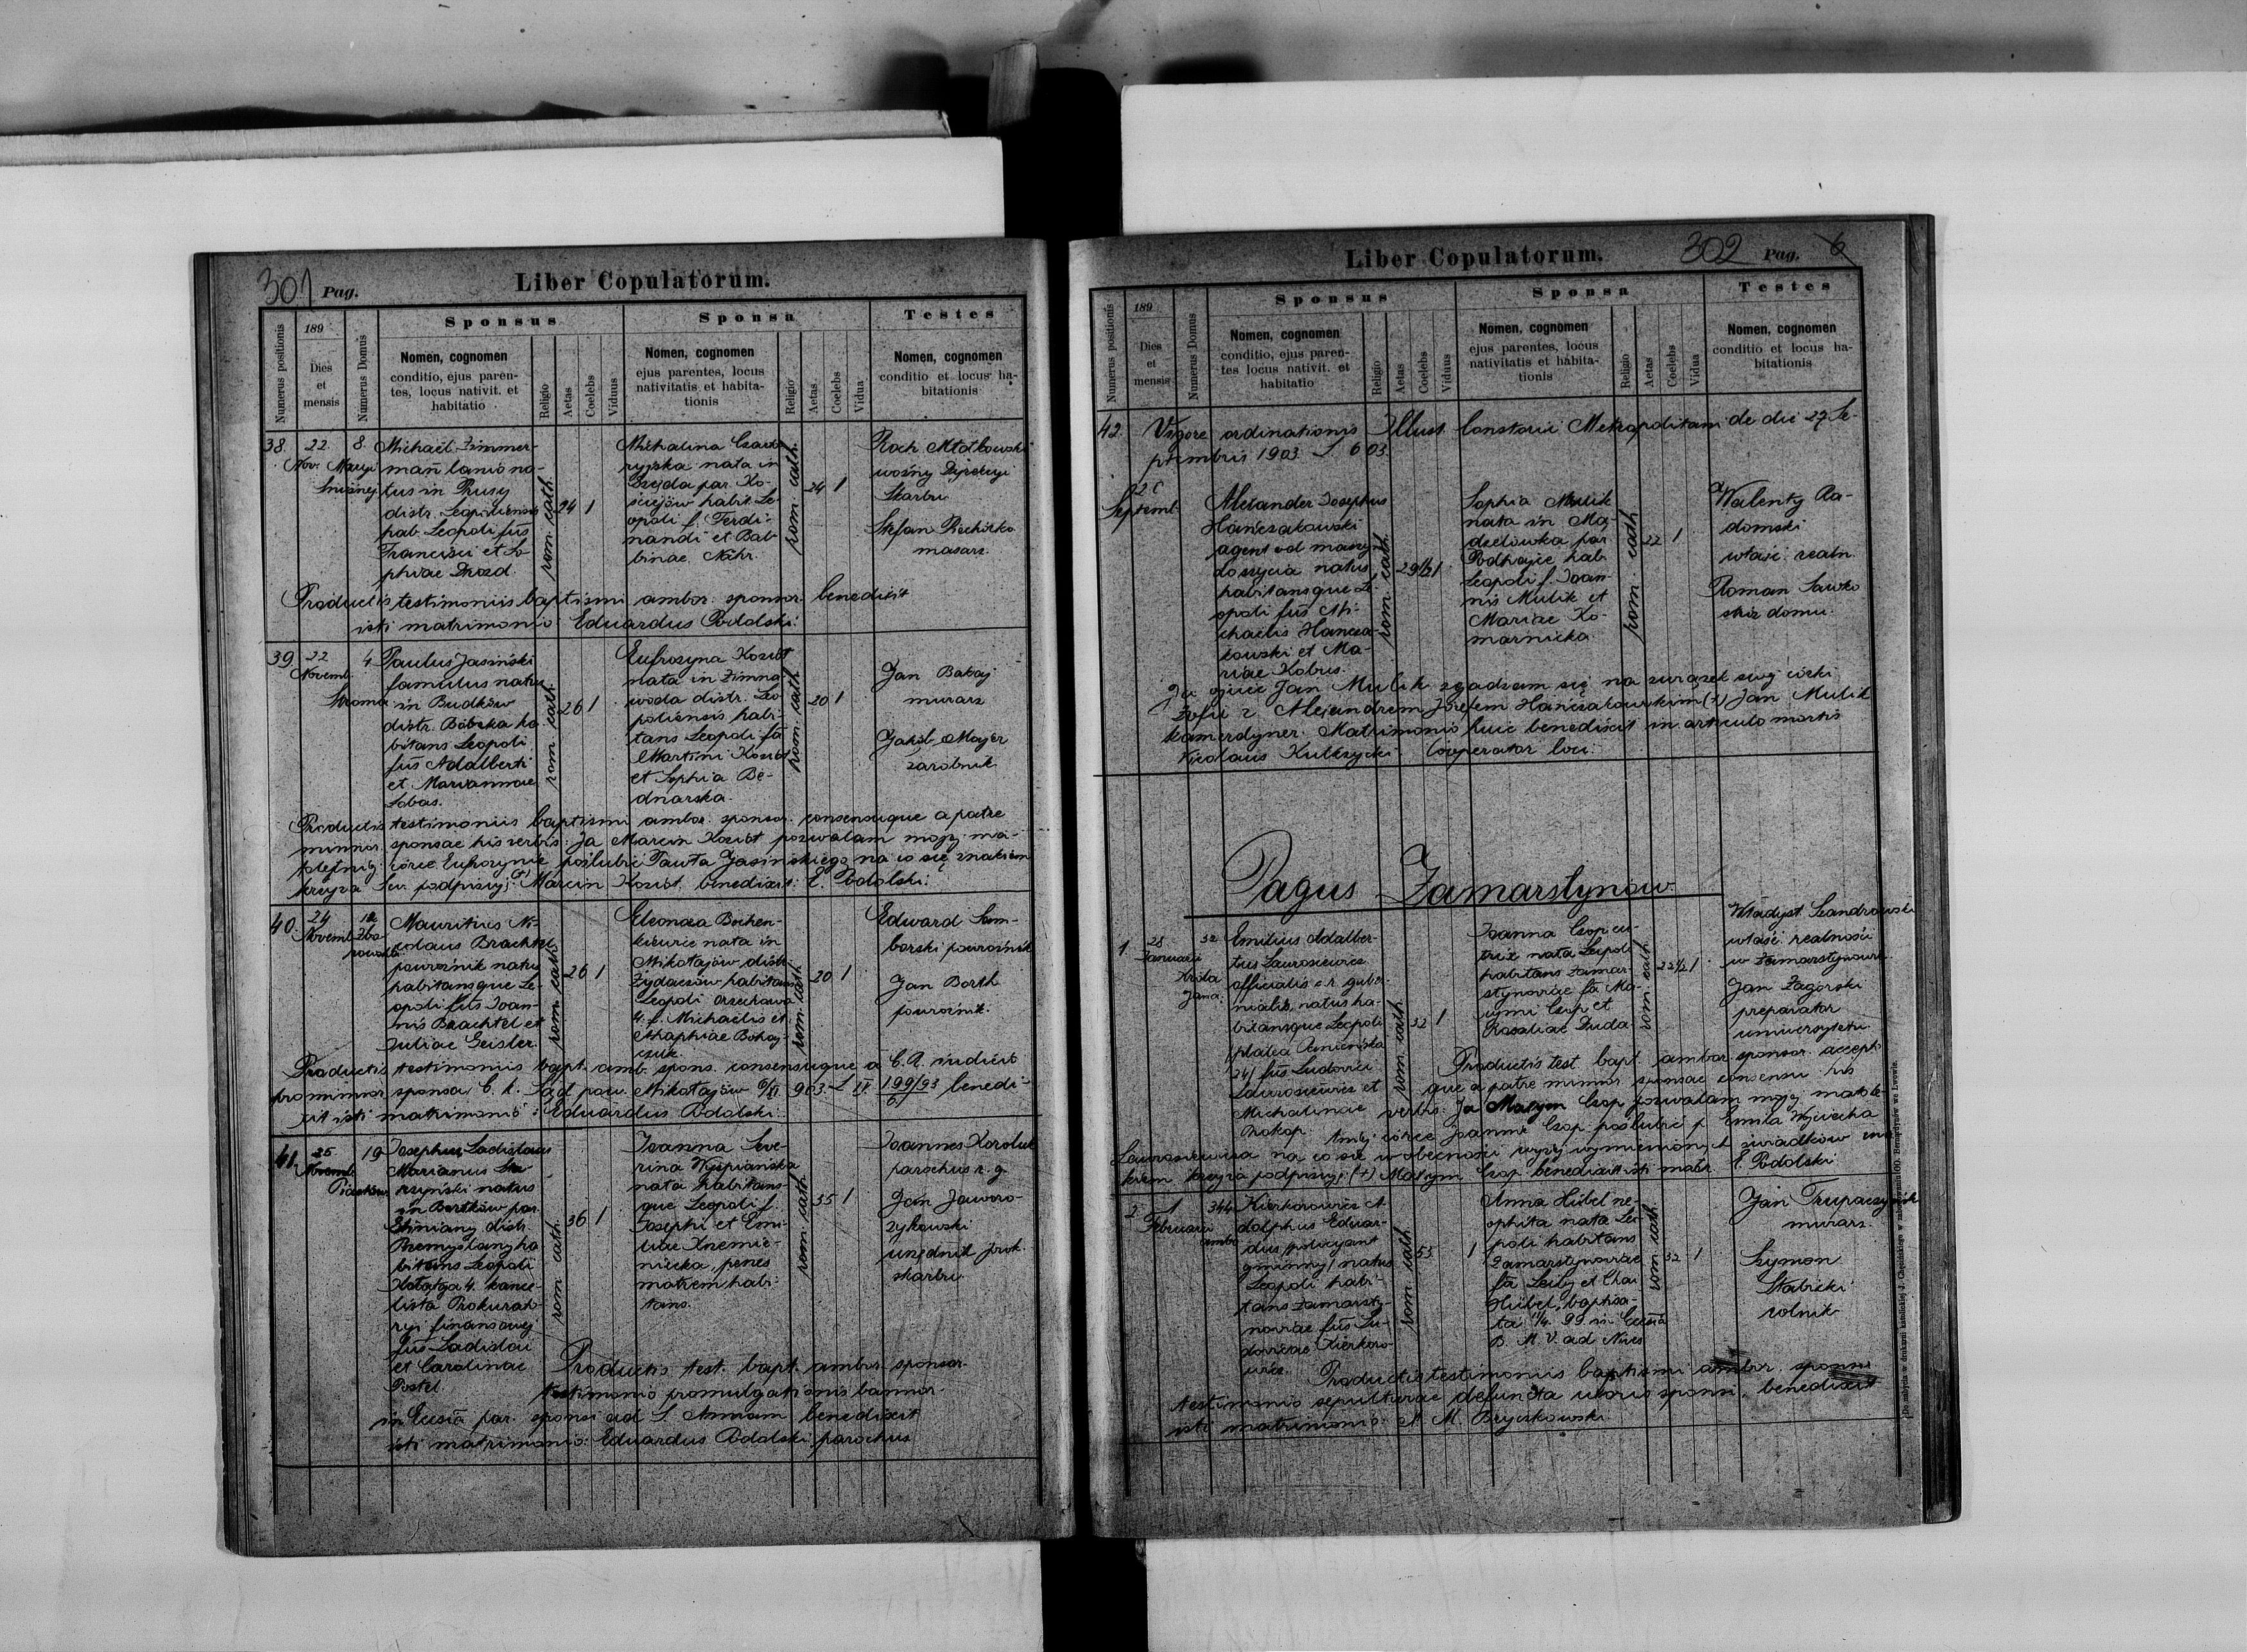 301 Pag.
Liber Copulatorum.
Numerus positionis
189
Dies
et
mensis
Numerus Domus
Sponsus
Nomen, cognomen
conditio, ejus paren-
tes, locus nativit. et
habitatio
Religio
Aetas
Coelebs
Viduus
Sponsa
Nomen, cognomen
ejus parentes, locus
nativitatis et habita-
tionis
Religio
Aetas
Coelebs
Vidua
Testes
Nomen, cognomen
conditio et locus ha-
bitationis
38.
22.
Nov.
8.
Maryi
Śnieżnej
Michaël Zimmer-
man lanio na-
tus in Prusy
distr. Leopoliensis
hab. Leopoli fũs
Francisci et So-
phiae Drozd.
rom. cath.
24
1
Michalina Czarto-
ryjska nata in
par. Ko-
ściejów habit. Le-
opoli f. Ferdi-
nandi et Bab-
binae Nähr.
rom. cath.
24
1
Roch Młotkowski
woźny Dyrekcyi
Skarbu
Stefan
masarz
Productis testimoniis baptismi ambor. sponsor. benedixit
isti matrimonio: Eduardus Podolski.
39.
22
Novemb.
4
Stroma
Paulus Jasiński
famulus natus
in Budków
distr. Bóbrka ha-
bitans Leopoli
fũs Adalberti
et Mariannae
Sabas.
rom. cath.
26
1
Eufrozyna Kozioł
nata in Zimna
woda distr. Leo-
poliensis habi-
tans Leopoli fa
Martini Kozioł
et Sophia Be-
dnarska.
rom. cath.
20
1
Jan Bakaj
murarz
Jakób Majer
zarobnik
Productis testimoniis baptismi ambor. sponsor. consensuque a patre
minnor. sponsae his verbis: Ja Marcin Kozioł pozwalam mojej ma-
łoletniej córce Eufrozynie poślubić Pawła Jasińskiego na co się znakiem
krzyża św. podpisuję: (+) Marcin Kozioł. benedixit: E. Podolski.
40.
24
Novemb.
12
Zba-
rowska
Mauritius Ni-
colaus Brachtel
powroźnik natus
habitansque Le-
opoli fũs Joan-
nis Brachtel et
Juliae Geisler.
rom. cath.
26
1
Eleonora Bochen-
kiewicz nata in
Mikołajów distr.
Żydaczów habitans
Leopoli Orzechowa
4. f. Michaëlis et
Agaphiae Bohaj-
czuk.
rom. cath.
20
1
Edward Sam-
borski powroźnik
Jan Borth
powroźnik.
Productis testimoniis bapt. amb. spons. consensuque a C. R. iudicio
pro minnor. sponsa C. k. Sąd pow. Mikołajów 6/XI 903. L. IV. 199/93 benedi-
xit isti matrimonio: Eduardus Podolski.
41.
25
Novemb.
19
Piastów
Josephus Ladislaus
Marianus
natus
in Bortków par.
Gliniany distr.
Przemyślany ha-
bitans Leopoli
Kołłątaja 4. kance-
lista Prokurato-
ryi finansowej
fũs Ladislai
et Carolinae
Postel
rom. cath.
36
1
Joanna Seve-
rina Wyspiańska
nata habitans-
que Leopoli f.
Josephi et Emi-
liae Krzemie-
niecka, penes
matrem habi-
tans.
rom. cath.
35
1
Joannes Koroluk
parochus r. g.
Jan Jaworo-
żykowski
urzędnik prok.
skarbu
Productis test. bapt. ambor. sponsor.
testimonio promulgationis bannor.
in Ecclesia par. sponsi ad S. Annam benedixit
isti matrimonio: Eduardus Podolski parochus
Liber Copulatorum.
302
Pag. 6
Numerus positionis
189
Dies
et
mensis
Numerus Domus
Sponsus
Nomen, cognomen
conditio, ejus paren-
tes locus nativit. et
habitatio
Religio
Aetas
Coelebs
Viduus
Sponsa
Nomen, cognomen
ejus parentes, locus
nativitatis et habita-
tionis
Religio
Aetas
Coelebs
Vidua
Testes
Nomen, cognomen
conditio et locus ha-
bitationis
42.
Vigore ordinationis Illust. Consistorii Metropolitani de die 27 Se-
ptembris 1903 L. 603.
Septemb.
Alexander Josephus
Hańczakowski
agent od maszyn
do szycia natus
habitansque Le-
opoli fũs Mi-
chaëlis Hańcza-
kowski et Ma-
riae Kobus.
rom. cath.
29 1/2
1
Sophia Mulik
nata in Ma-
dzelówka par.
Podhajce hab.
Leopoli f. Joan-
nis Mulik et
Mariae Ko-
marnicka
rom. cath.
22
1
Walenty Ra-
domski
właśc. realn.
Roman Sawko
stróż domu.
Ja ojciec Jan Mulik zgadzam się na związek swej córki
Zofii z Alexandrem Józefem Hańczakowskim (+) Jan Mulik
kamerdyner. Matrimonio huic benedixit in articulo mortis
Nicolaus Kulczycki Cooperator loci.
Pagus Zamarstynów.
1
28
Januarii
32
Króla
Jana.
Emilius Adalber-
tus Laurosiewicz
officialis c. r. guber-
nialis, natus ha-
bitansque Leopoli
(platea Kamieńska
24) fũs Ludovici
Laurosiewicz et
Michalinae
Prokop
rom. cath.
32
1
Joanna Czop su-
trix nata Leopoli
habitans Zamar-
stynoviae fa Ma-
ximi Czop et
Rosaliae Duda
rom. cath.
22 1/2
1
Władysł. Szandrowski
właśc. realności
w Zamarstynowie.
Jan Zagórski
preparator
uniwersytetu
Productis test. bapt. ambor. sponsor. accepto
que a patre minnor. sponsae consensu his
verbis: Ja Maxym Czop pozwalam mojej małole-
tniej córce Joannie Czop poślubić p. Emila Wojciecha
Laurosiewicza na co się w obecności wyżej wymienionych świadków zna-
kiem krzyża podpisuję: (+) Maxym Czop. benedixit isti matr. E. Podolski
2
1
Februarii
344
ambo
Kierkorowicz A-
dolphus Eduar-
dus, policyant
gminny / natus
Leopoli habi-
tans Zamarsty-
noviae fũs Lu-
dovicae Kierkoro-
wicz.
rom. cath.
53
1
Anna Hübel ne-
ophita nata Leo-
poli habitans
Zamarstynoviae
fa Leiby et Chai
Hübel, baptisa-
ta 1/4. 99 in Ecclesia
B. M. V. ad Nives
rom. cath.
32
1
Jan Trupaczyński
murarz.
Szymon
Stabicki
rolnik
Productis testimoniis baptismi ambor. sponsor.
testimonio sepulturae defuncta uxoris sponsi, benedixit
isti matrimonio: A. M. Bryczkowski.